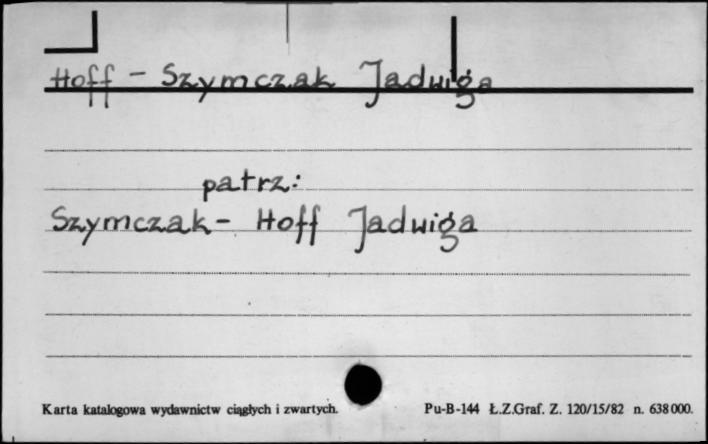 Hoff - Szymczak Jadwiga
patrz:
Szymczak - Hoff Jadwiga
Karta katalogowa wydawnictw ciągłych i zwartych.
Pu-B-144 Ł.Z.Graf. Z. 120/15/82 n. 638000.